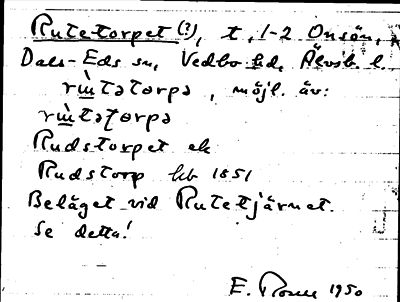 Rutetorpet (?), t, 1-2 Onsön,
Dals-Eds sn, Vedbo hd, Älvsb. l.
rɯ̀tətorpə, möjl. äv:
rɯ̀tətɵrpə
Rudstorpet ek
Rudstorp hb 1851
Beläget vid Rutetjärnet.
Se detta!
E. 1950